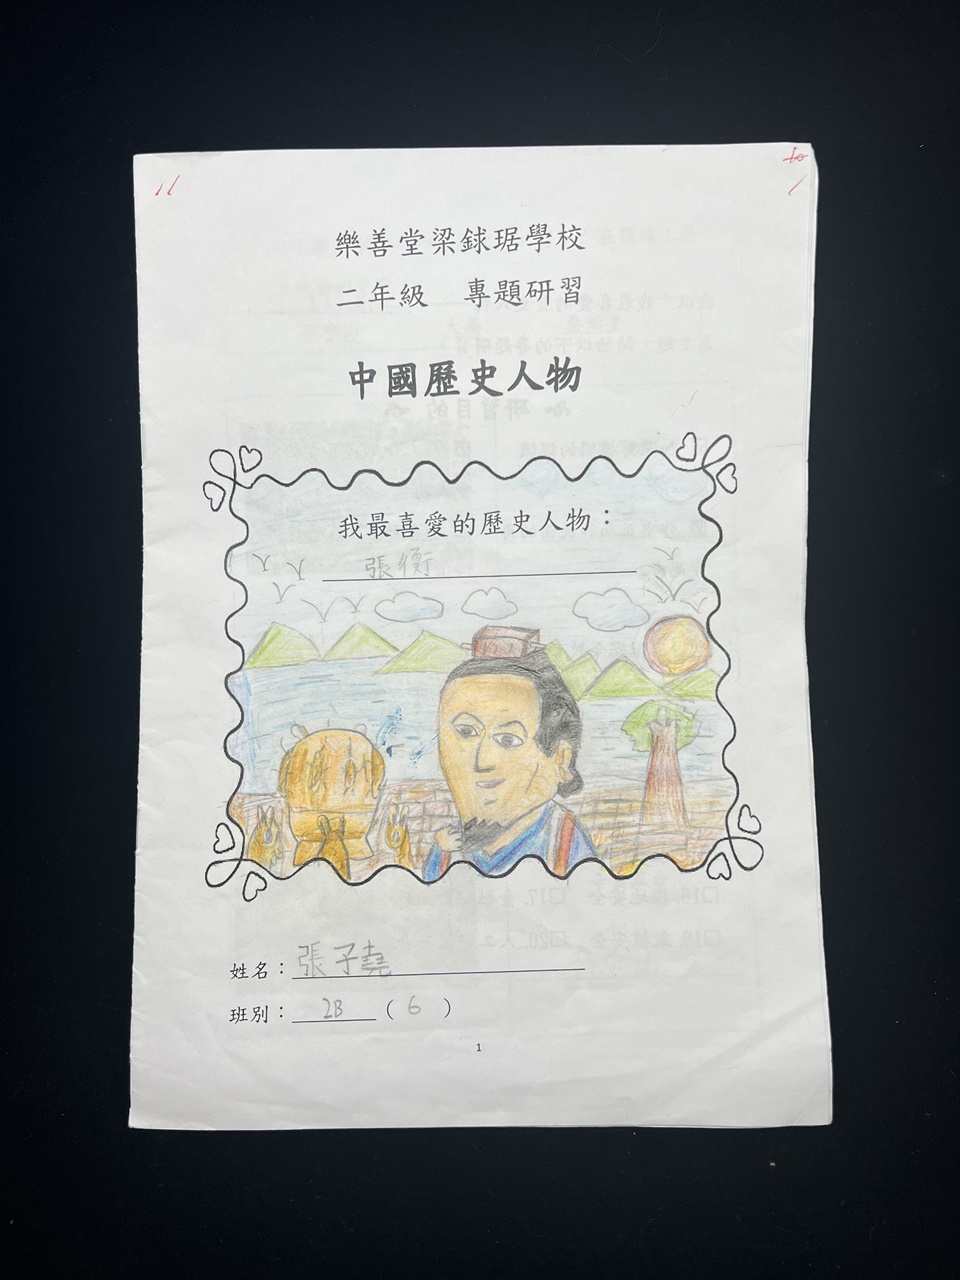 樂善堂梁銶琚學校
二年級 專題研習
中國歷史人物
我最喜愛的歷史人物：
張衡
姓名：張子堯
班別：2B（6）
1